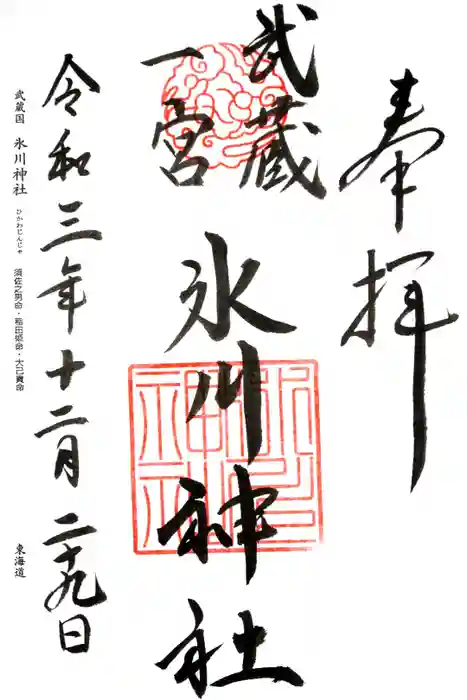 奉拝
武蔵
一宮
氷川神社
令和三年十二月二十九日
武蔵国 氷川神社 ひかわじんじゃ 須佐之男命・稲田姫命・大己貴命 東海道
氷川
神社